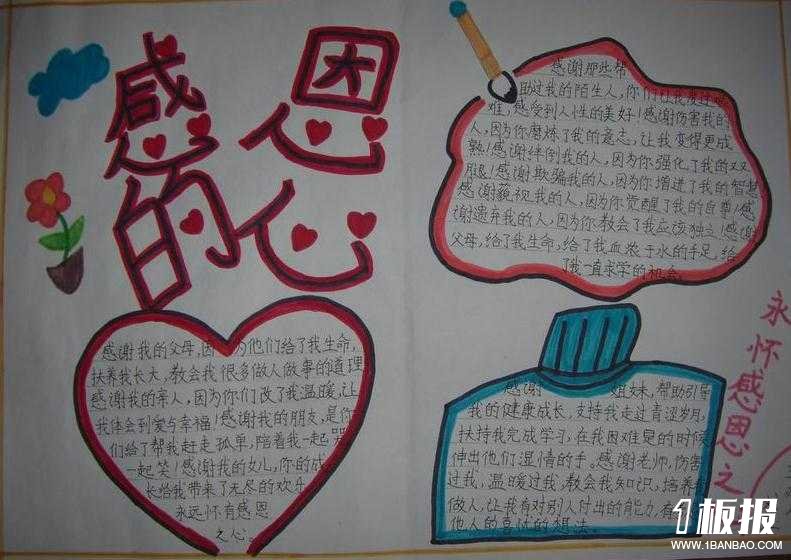 感恩
的心
感谢我的父母,因为他们给了我生命,
扶养我长大,教会我很多做人做事的道理
感谢我的亲人,因为你们改了我温暖,让
我体会到爱与幸福!感谢我的朋友,是你
们给了帮我赶走孤单,陪着我一起哭
一起笑!感谢我的女儿,你的成
长给我带来了无尽的欢乐
永远怀有感恩
之心。
感谢那些帮
助过我的陌生人,你们让我
难,感受到人性的美好!感谢伤害我的
人,因为你磨炼了我的意志,让我变得更成
熟!感谢绊倒我的人,因为你强化了我的双
腿!感谢欺骗我的人,因为你增进了我的智慧
感谢藐视我的人,因为你觉醒了我的自尊!感
谢遗弃我的人,因为你教会了我应该独立!感谢
父母,给了我生命,给了我血浓于水的手足,给
了我一直求学的机会
感谢 姐妹,帮助引导
我的健康成长,支持我走过青涩岁月,
扶持我完成学习,在我困难是的时候
伸出他们湿情的手。感谢老师,伤害
过我,温暖过我,教会我知识,培养
做人,让我有对别人付出的能力,有
他人的喜过的想法。
永怀感恩之
1板报
WWW.1BANBAO.COM